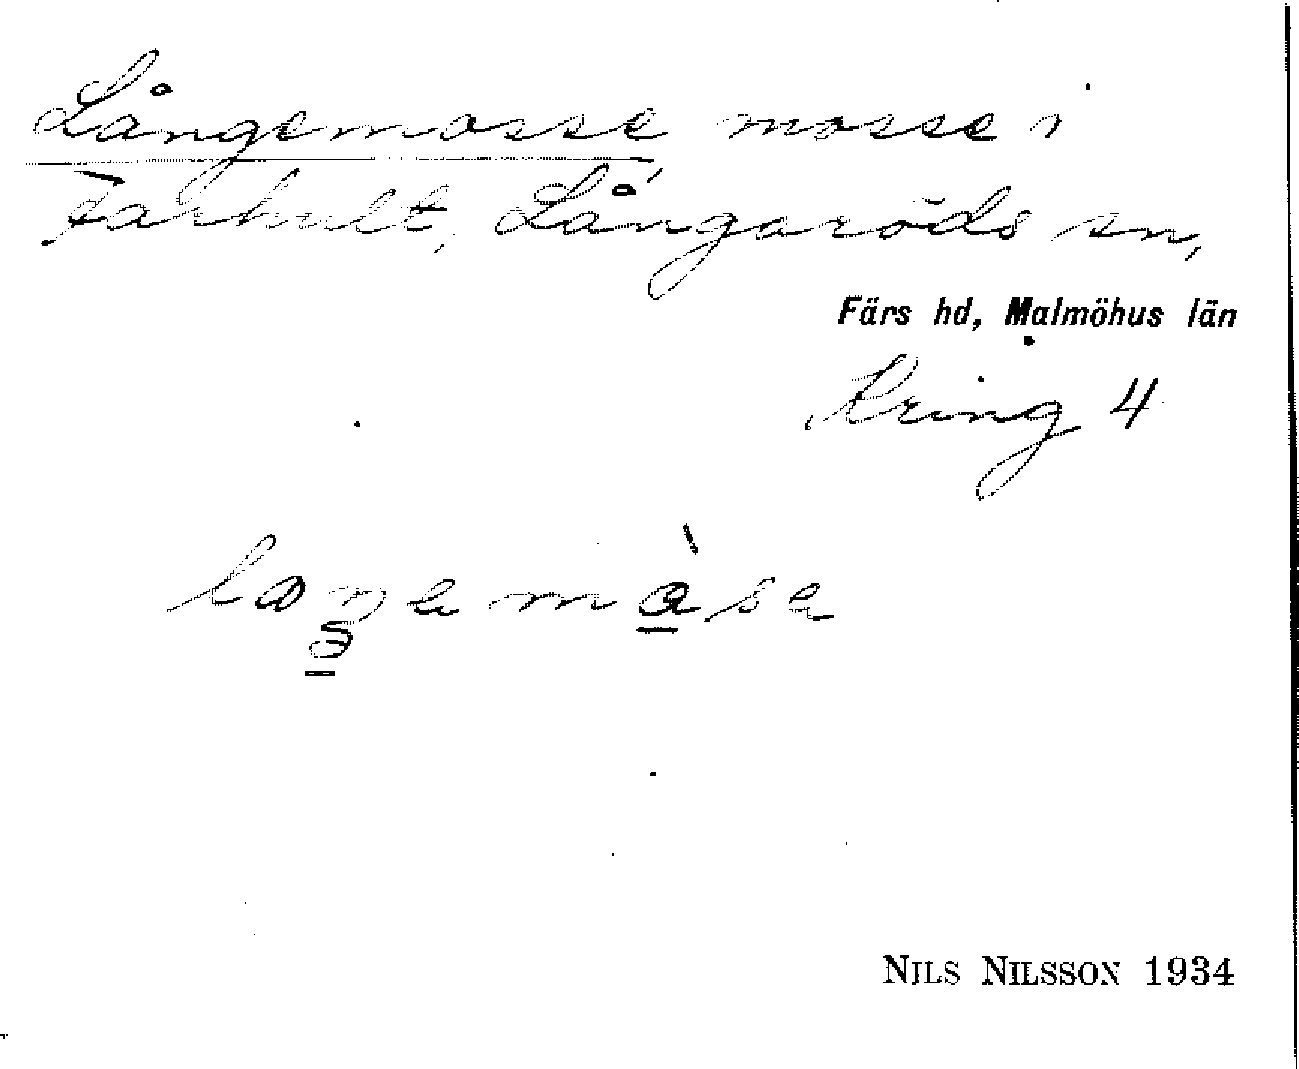 Långemosse mosse i
Farhult, Långaröds sn,
Färs hd, Malmöhus län
Kring 4
NILS NILSSON 1934